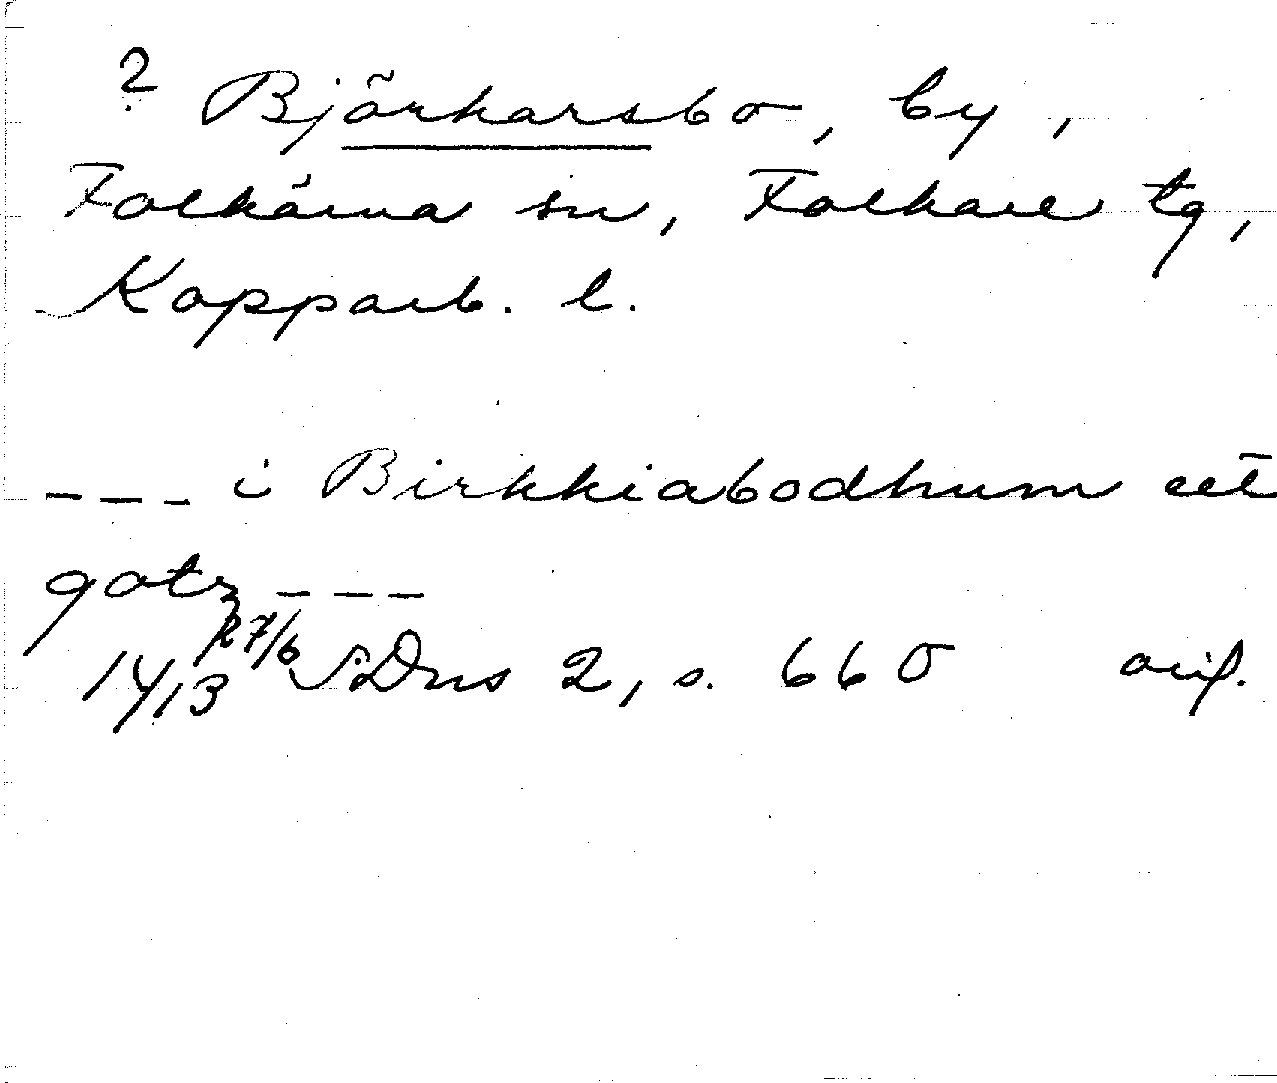 ? Björkarsbo, by,
Folkärna sn, Folkare tg,
Kopparb. l.
--- i Birkkiabodhum eet
gotz ---
1413 27/6 SDns 2, s. 660 orig.